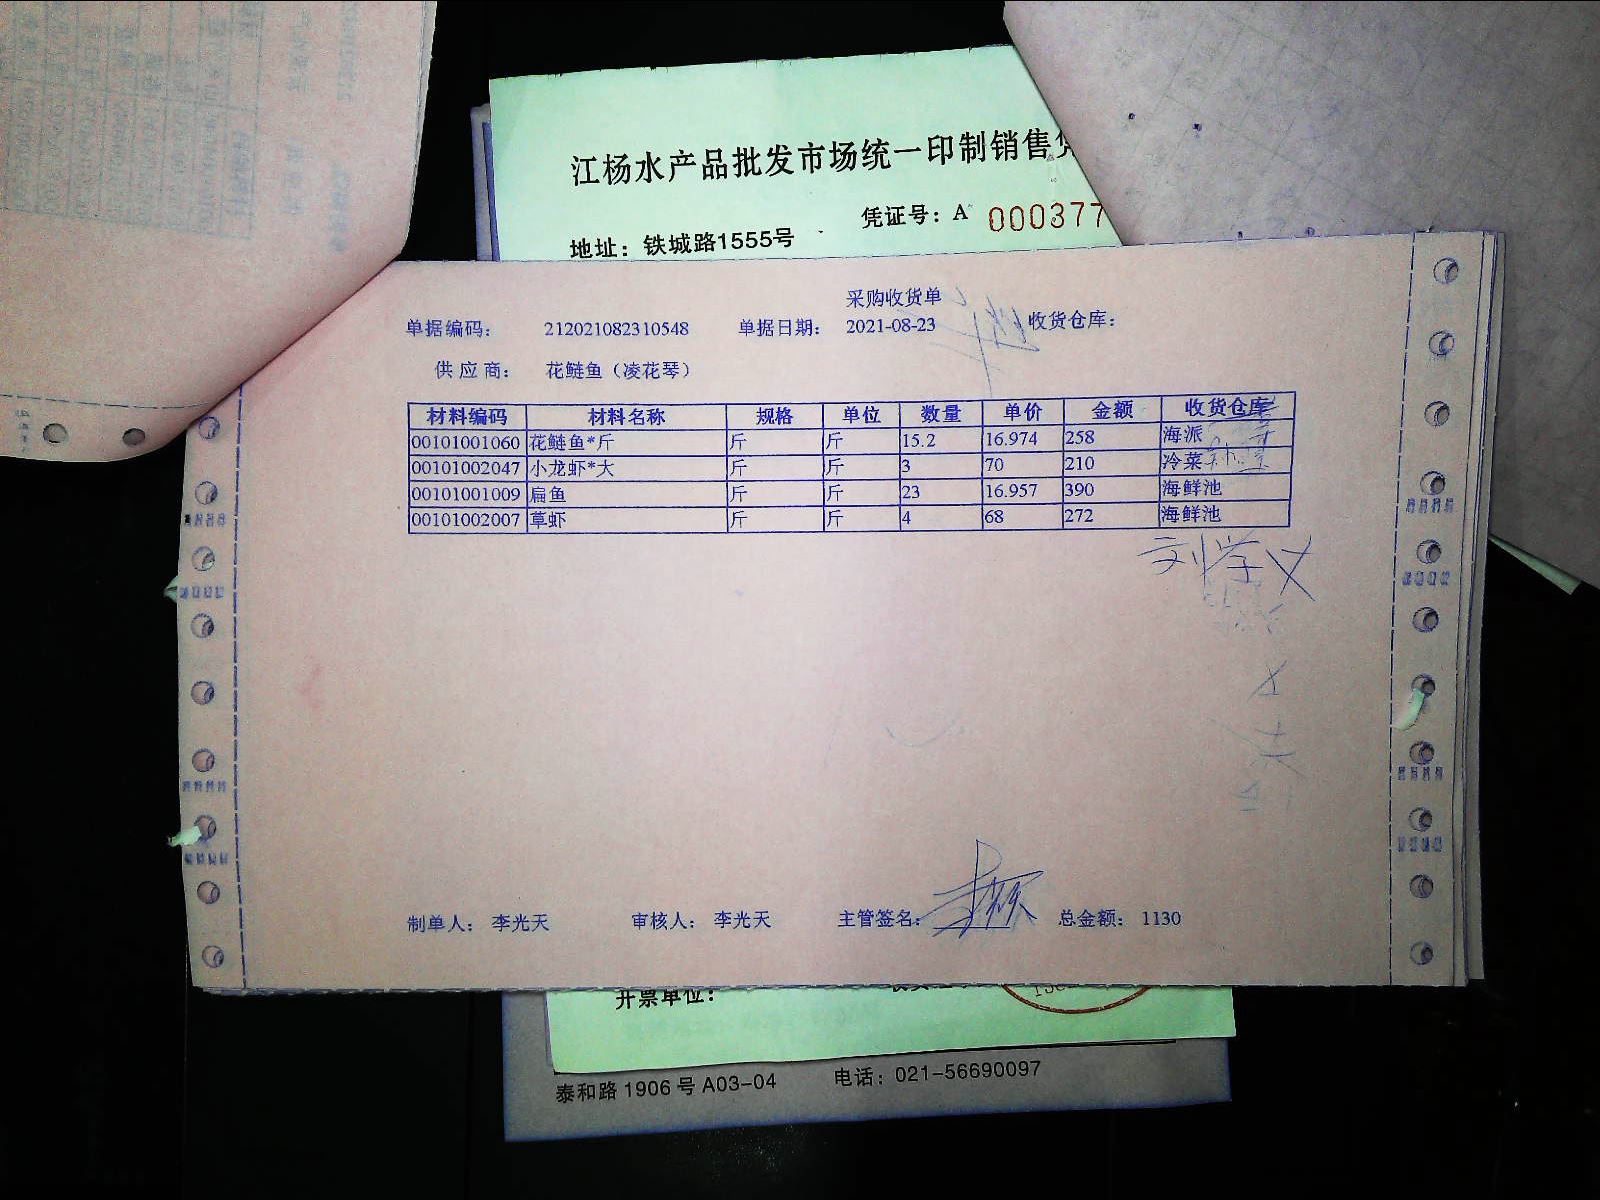 江杨水产品批发市场统一印制销售凭
凭证号：A 000377
地址：铁城路1555号
采购收货单
单据编码： 212021082310548 单据日期： 2021-08-23 收货仓库：
供应商： 花鲢鱼（凌花琴）
材料编码 材料名称 规格 单位 数量 单价 金额 收货仓库
00101001060 花鲢鱼*斤 斤 斤 15.2 16.974 258 海派
00101002047 小龙虾*大 斤 斤 3 70 210 冷菜
00101001009 扁鱼 斤 斤 23 16.957 390 海鲜池
00101002007 草虾 斤 斤 4 68 272 海鲜池
刘学义
制单人： 李光天 审核人： 李光天 主管签名： 总金额： 1130
开票单位：
泰和路1906号A03-04 电话：021-56690097